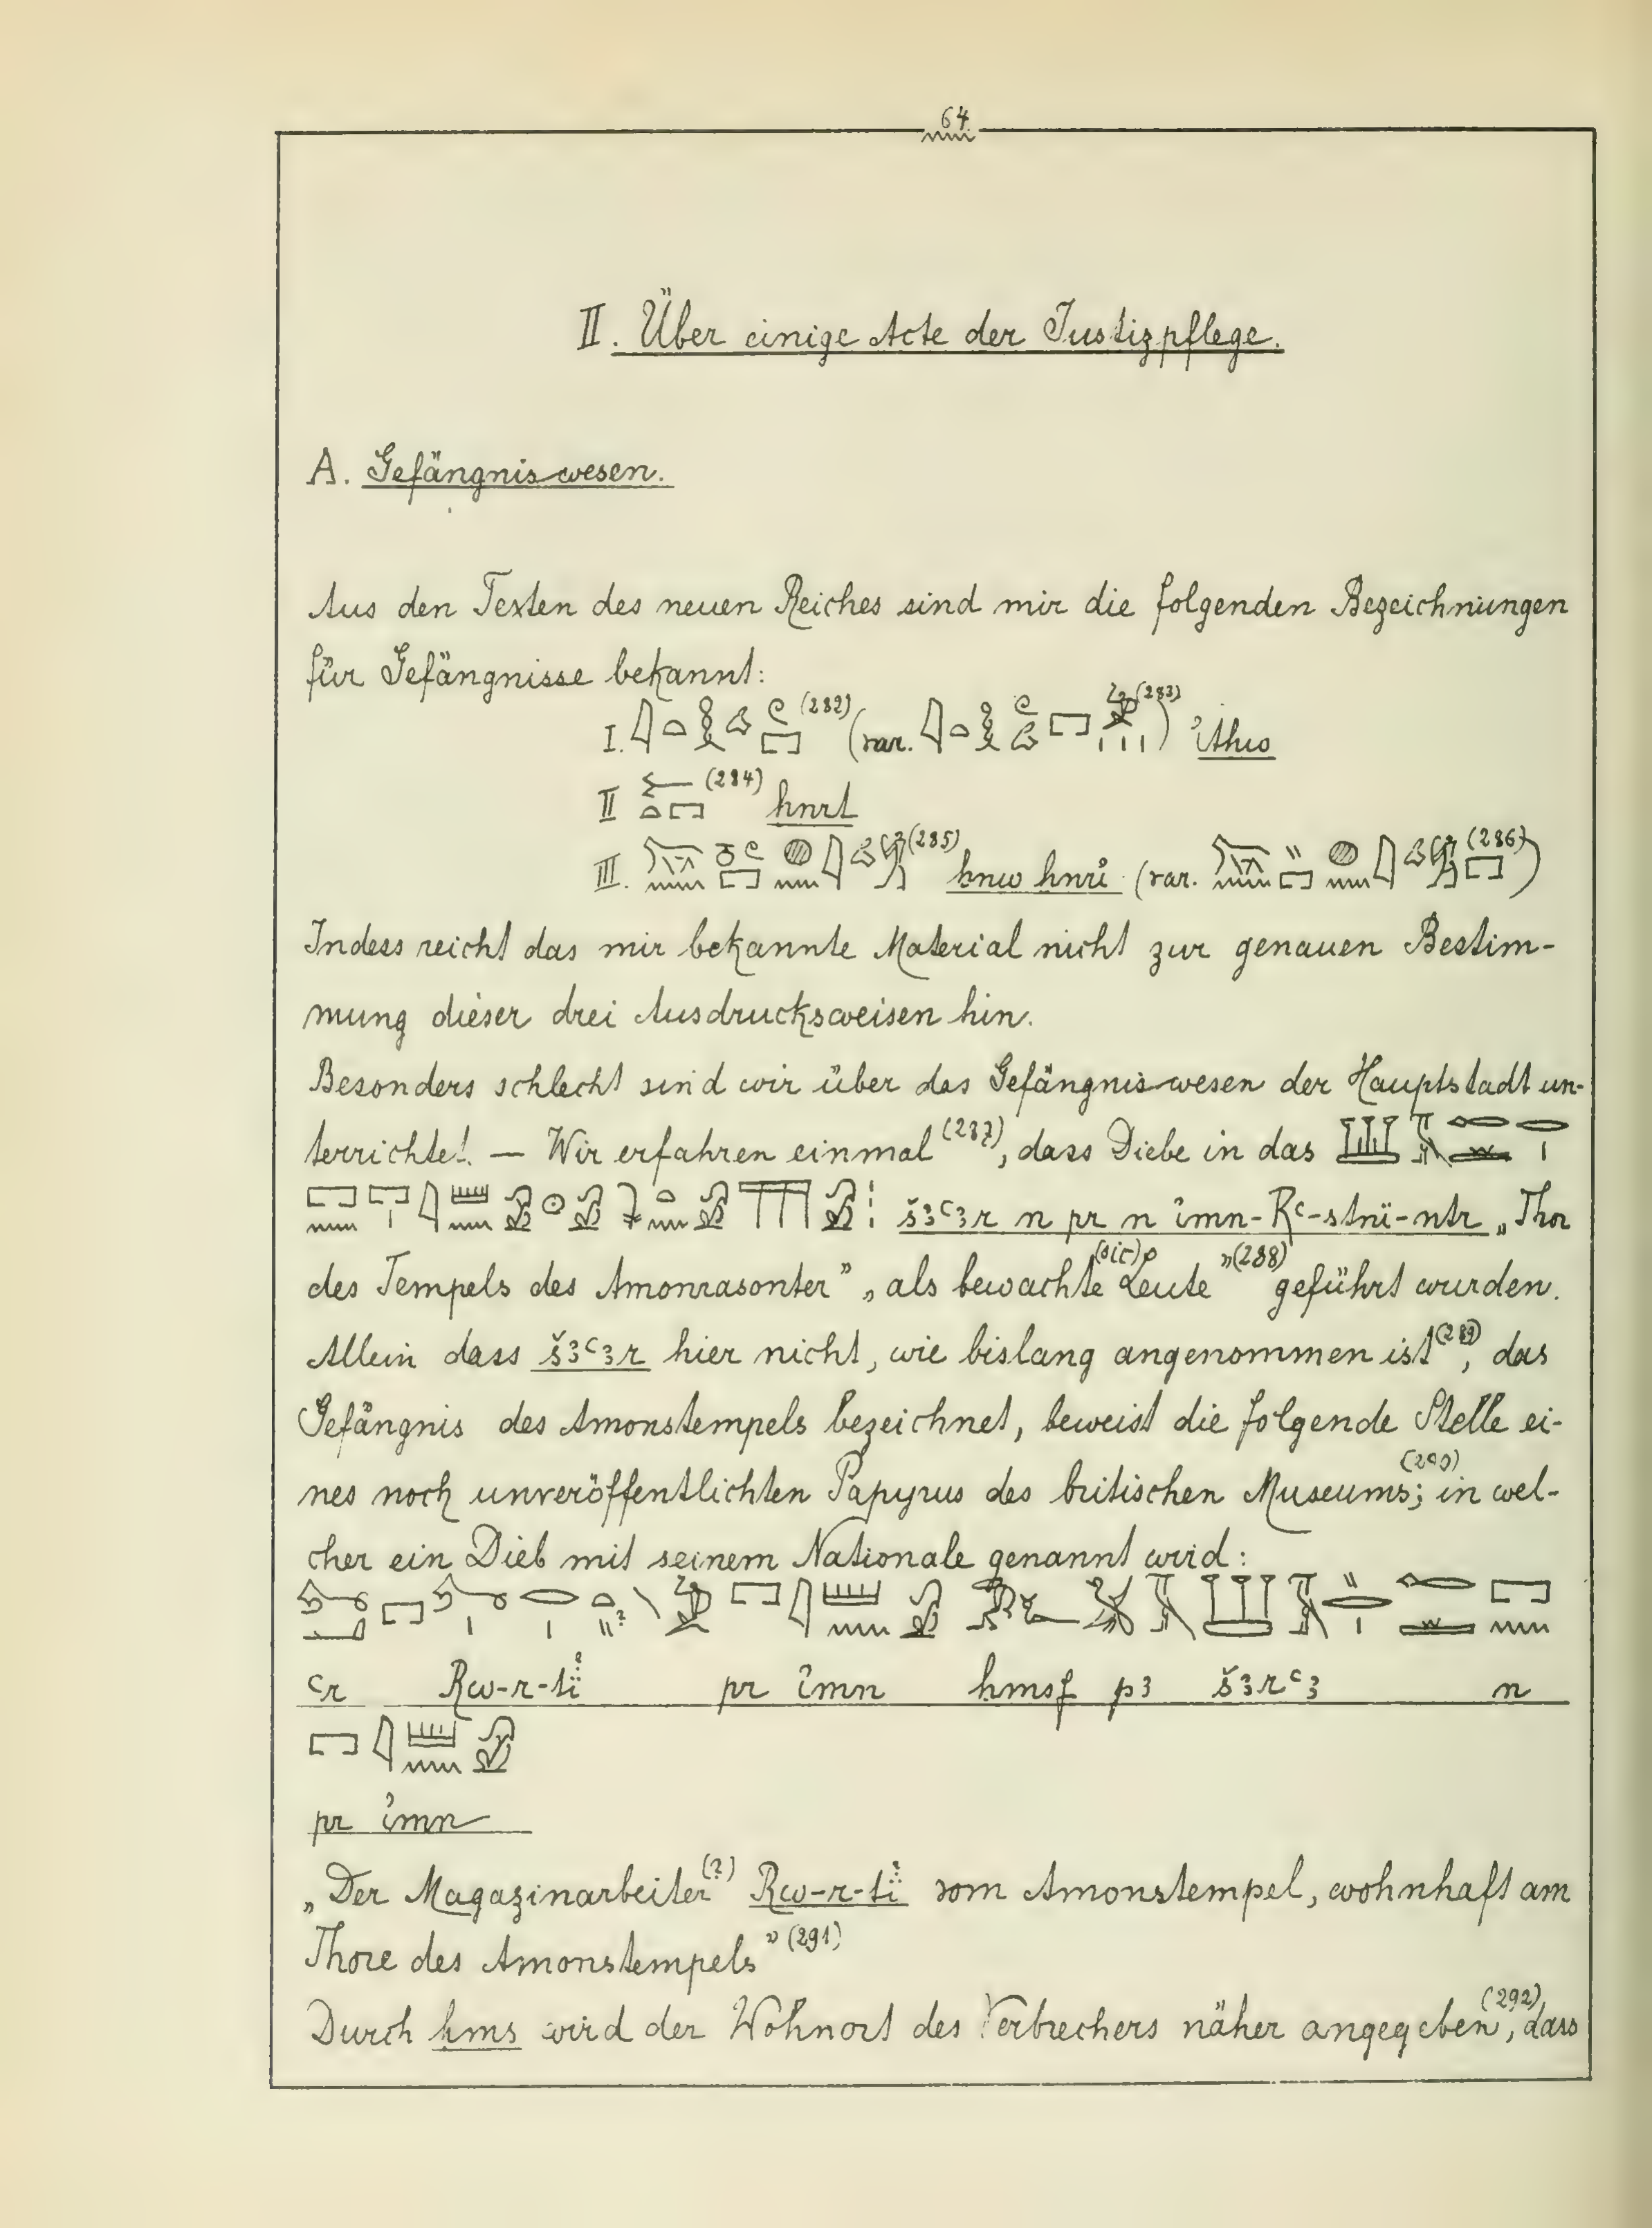 64
II. Über einige Acte der Justizpflege.
A. Gefängniswesen.
Aus den Texten des neuen Reiches sind mir die folgenden Bezeichnungen
für Gefängnisse bekannt:
I. (282) (var. (283)) ỉthw
II (284) hnrt
III. (285) hnw hnrỉ (var. (286))
Indess reicht das mir bekannte Material nicht zur genauen Bestim-
mung dieser drei Ausdrucksweisen hin.
Besonders schlecht sind wir über das Gefängniswesen der Hauptstadt un-
terrichtet. — Wir erfahren einmal (287), dass Diebe in das
š3ꜥ3r n pr n ỉmn-Rꜥ-stnï-ntr „Thor
des Tempels des Amonrasonter” „als bewachte (sic) Leute” (288) geführt wurden.
Allein dass š3ꜥ3r hier nicht, wie bislang angenommen ist (289), das
Gefängnis des Amonstempels bezeichnet, beweist die folgende Stelle ei-
nes noch unveröffentlichten Papyrus des britischen Museums; (290) in wel-
cher ein Dieb mit seinem Nationale genannt wird:
ꜥr Rw-r-tï pr ỉmn hmsf p3 š3rꜥ3 n
pr ỉmn
„Der Magazinarbeiter (?) Rw-r-tï vom Amonstempel, wohnhaft am
Thore des Amonstempels” (291)
Durch hms wird der Wohnort des Verbrechers näher angegeben (292), dass